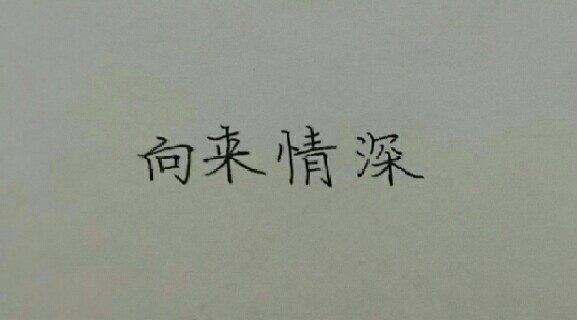 向来情深